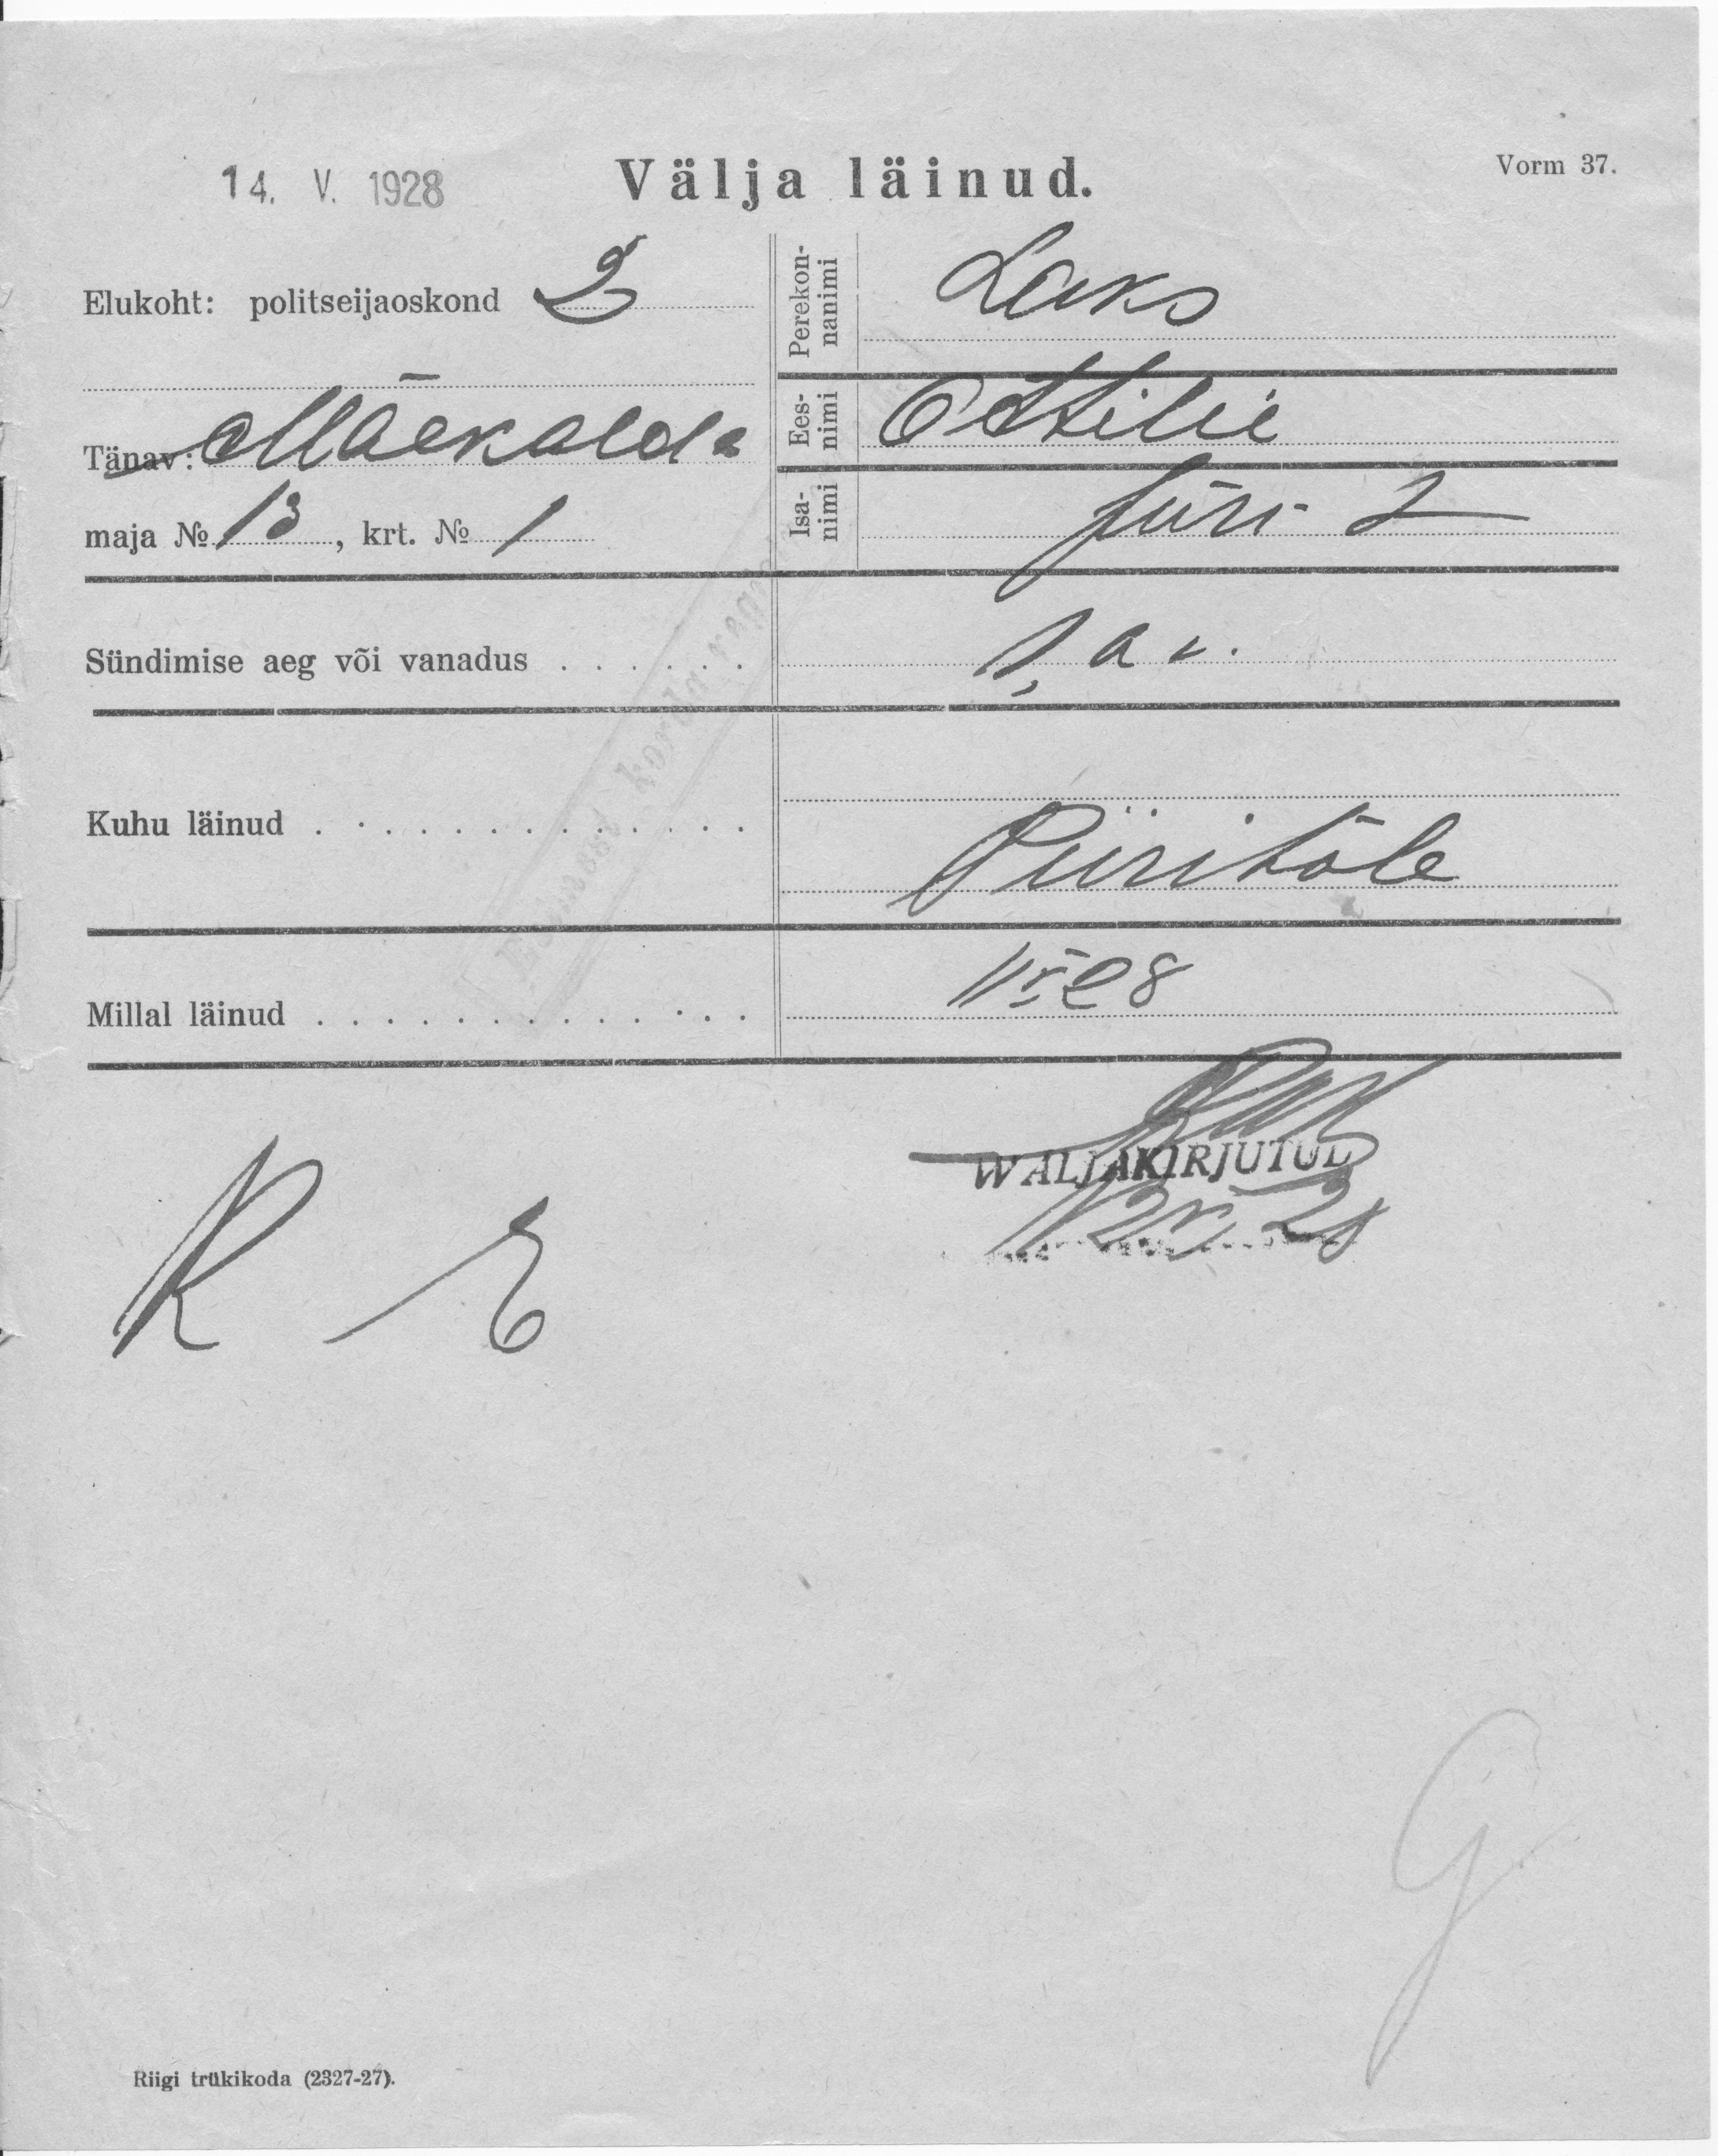 14. V. 1928
Välja läinud.
Vorm 37.
Elukoht: politseijaoskond 2
Tänav: Mäekalda
maja № 13, krt. № 1
Perekon-
nanimi
Laks
Ees-
nimi
Ottilie
Isa-
nimi
Jüri t
Sündimise aeg või vanadus . . . . . .
1 a v.
Kuhu läinud . . . . . . . . . . .
Piiritõle
Millal läinud . . . . . . . . . . .
11 V 28
WALJAKIRJUTUD
12 V. 28
K
G
Riigi trükikoda (2327-27).